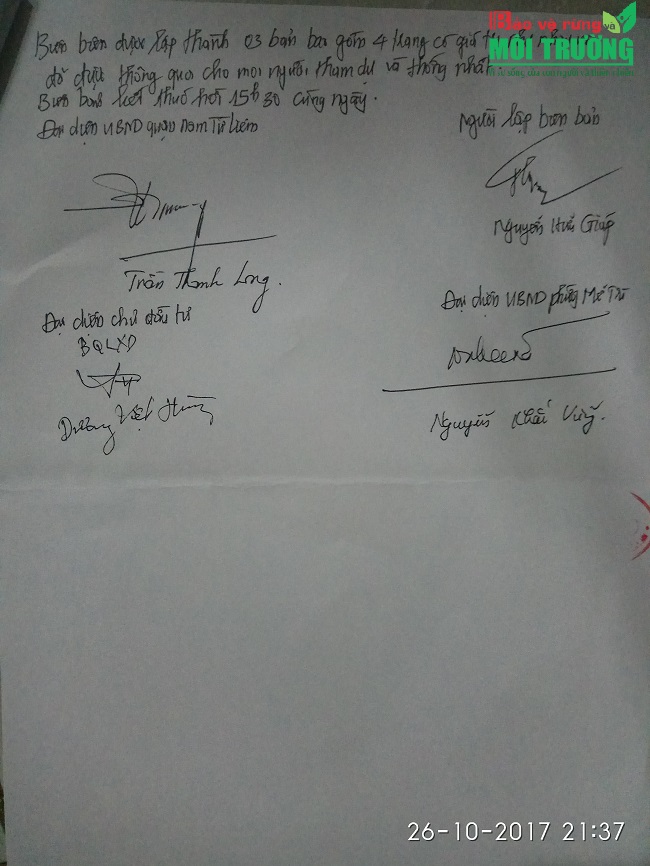 Bảo vệ rừng và
MÔI TRƯỜNG
Biên bản được lập thành 03 bản bao gồm 4 trang có giá
đã được thông qua cho mọi người tham dự và thống nhất
Biên bản kết thúc hồi 15h30 cùng ngày.
Đại diện UBND quận Nam Từ Liêm
Người lập biên bản
Nguyễn Hữu Giáp
Trần Thanh Long.
Đại diện UBND phường Mễ Trì
Đại diện chủ đầu tư
BQLXD
Dương Việt Hùng
Nguyễn Khắc
26-10-2017 21:37